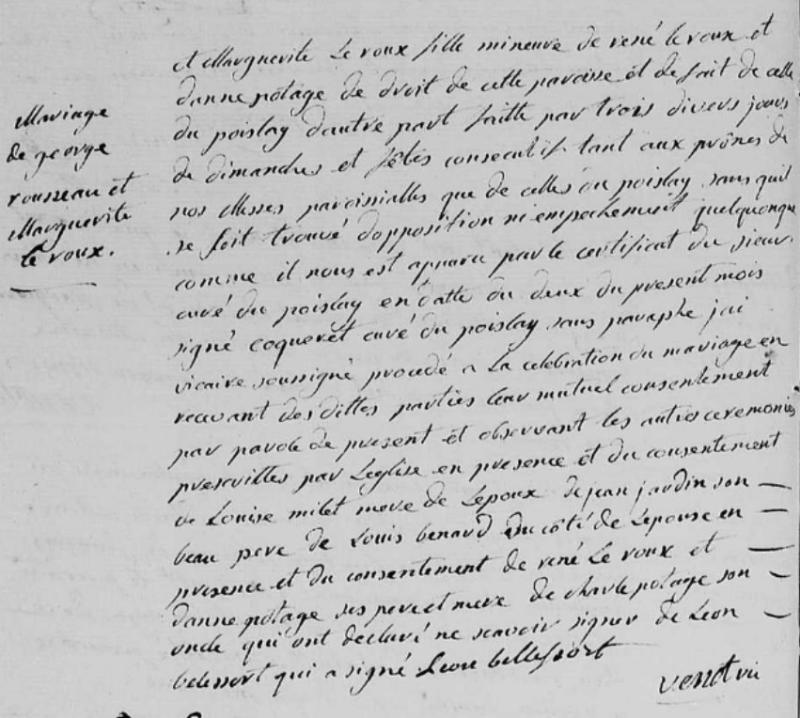 Mariage
de george
rousseau et
Marguerite
le roux.
et Marguerite Le roux fille mineure de rené le roux et
danne potage de droit de cette paroisse et de fait de celle
du poislay dautre part faitte par trois divers jours
de dimanches et fêtes consecutifs tant aux prônes de
nos Messes paroissialles que de celles du poislay sans quil
se soit trouvé dopposition ni empechement quelquonque
comme il nous est aparu par le certificat du sieur
curé du poislay en datte du deux du present mois
signé coqueret curé du poislay sans paraphe jai
vicaire soussigné procedé a La celebration du mariage en
recevant des dittes parties leur mutuel consentement
par parole de present et observant les autres ceremonies
prescrittes par Leglise en presence et du consentement
de Louise milet mere de Lepoux de jean jardin son
beau pere de Louis benard du côté de Lepouse en
presence et du consentement de rené Le roux et
danne potage ses pere et mere de charle potage son
oncle qui ont declaré ne scavoir signer de Leon
belessort qui a signé Leon bellessort